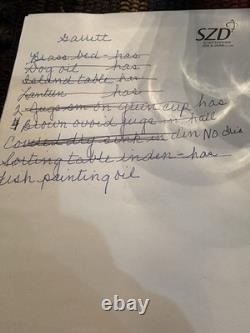 SZD
Garrett
Brass bed - has
Dog oil - has
Island table has
Lantern has
2 Jugs on quen cup has
4 Brown ovoid jugs in hall
Covered dry sink in den No dia
Sorting table in den - has
fish painting oil
ebay